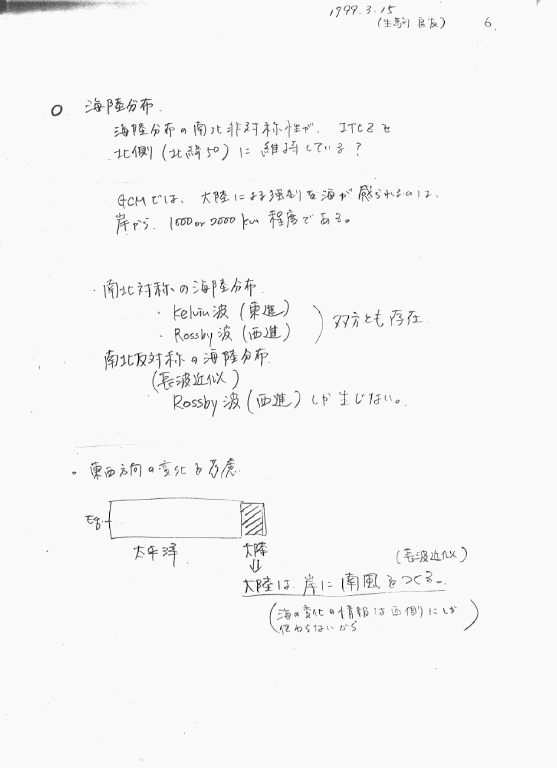 1999.3.15
(生駒 良友) 6
○ 海陸分布
海陸分布の南北非対称性が、ITCZを
北側(北緯5°)に維持している?
GCMでは、大陸による強制を海が感じられるのは、
岸から、1000 or 2000 km 程度である。
・南北対称の海陸分布
・Kelvin波(東進)
・Rossby波(西進)
双方とも存在
・南北反対称の海陸分布
(長波近似)
Rossby波(西進)しか生じない。
・東西方向の変化を考慮
Eq.
太平洋 大陸
⇓ (長波近似)
大陸は岸に南風をつくる。
(海の変化の情報は西側にしか
伝わらないから)